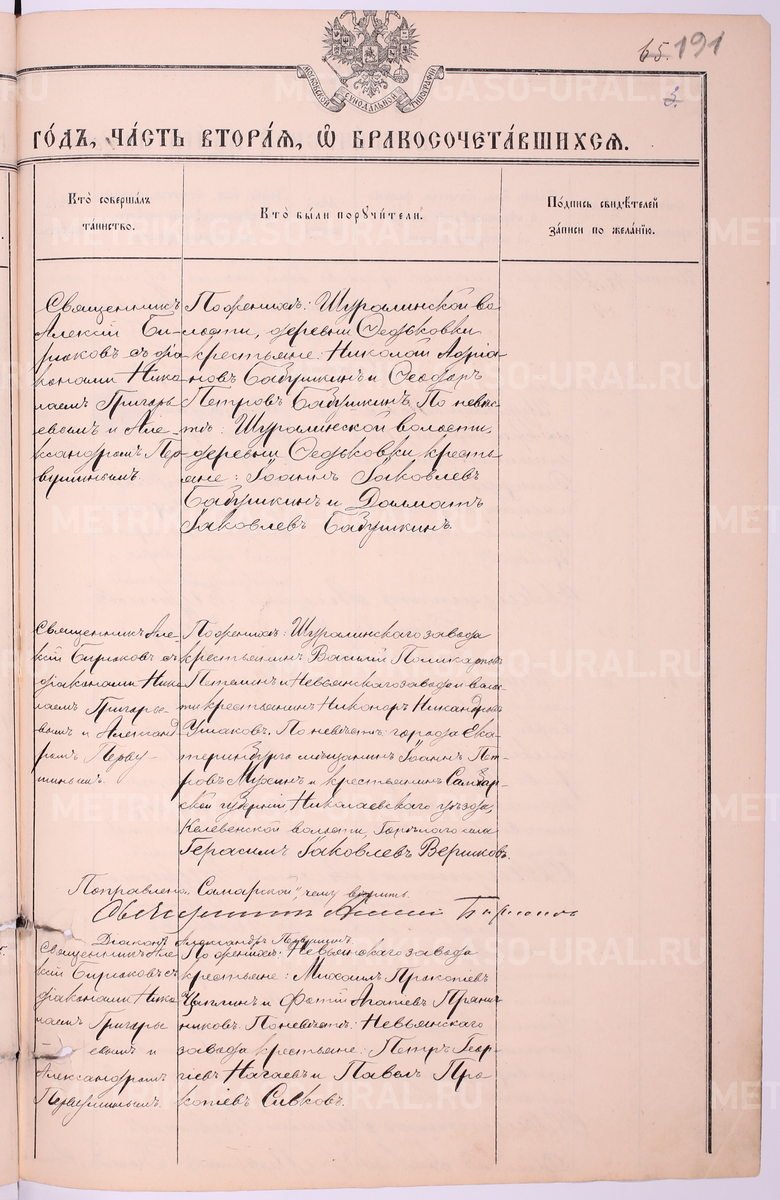 65. 191
3.
МОСКОВСКОЙ СѴНОДАЛЬНОЙ ТИПОГРАФІИ
ГО́ДЪ, ЧА́СТЬ ВТОРА́Я, Ѡ БРАКОСОЧЕТА́ВШИХСЯ.
Кто̀ совершалъ
та́инство.
Кто̀ бы́ли пору́чи́тели.
По́дпись свидѣ́телей
за́писи по жела́нїю.
Священникъ
Алексій Би-
рюковъ съ діа-
конами Нико
лаемъ Григорь
евымъ и Але-
ксандромъ Пер
вушинымъ.
По женихѣ: Шуралинской во
лости, деревни Ѳедьковки
крестьяне: Николай Адріа-
новъ Бабушкинъ и Ѳеодоръ
Петровъ Бабушкинъ. По невѣс-
тѣ: Шуралинской волости,
деревни Ѳедьковки кресть
яне: Іоаннъ Іаковлевъ
Бабушкинъ и Долматъ
Іаковлевъ Бабушкинъ.
Священникъ Але-
ксій Бирюковъ съ
діаконами Нико
лаемъ Григорье-
вымъ и Александ
ромъ Перву-
шинымъ.
По женихѣ: Шуралинскаго завода
крестьянинъ Василій Поликарповъ
и Невьянскаго завода и волос-
ти крестьянинъ Никаноръ Никандровъ
Ушаковъ. По невѣстѣ: города Ека
теринбурга мѣщанинъ Іоаннъ Пет-
ровъ Мухинъ и крестьянинъ Самар-
ской губерніи Николаевскаго уѣзда,
волости, села
Герасимъ Іаковлевъ Вершковъ.
Поправлено „Самарской", чему вѣрить.
Священникъ Алексій Бирюковъ
Діаконъ Александръ Первушинъ
Священникъ Але
ксій Бирюковъ съ
діаконами Нико
лаемъ Григорь
евымъ и
Александромъ
Первушинымъ.
По женихѣ: Невьянскаго завода
крестьяне: Михаилъ Прокопіевъ
и Фотій
По невѣстѣ: Невьянскаго
завода крестьяне: Петръ Геор-
гіевъ Нагаевъ и Павелъ Про
копіевъ Сивковъ.
METRIKI.GASO-URAL.RU